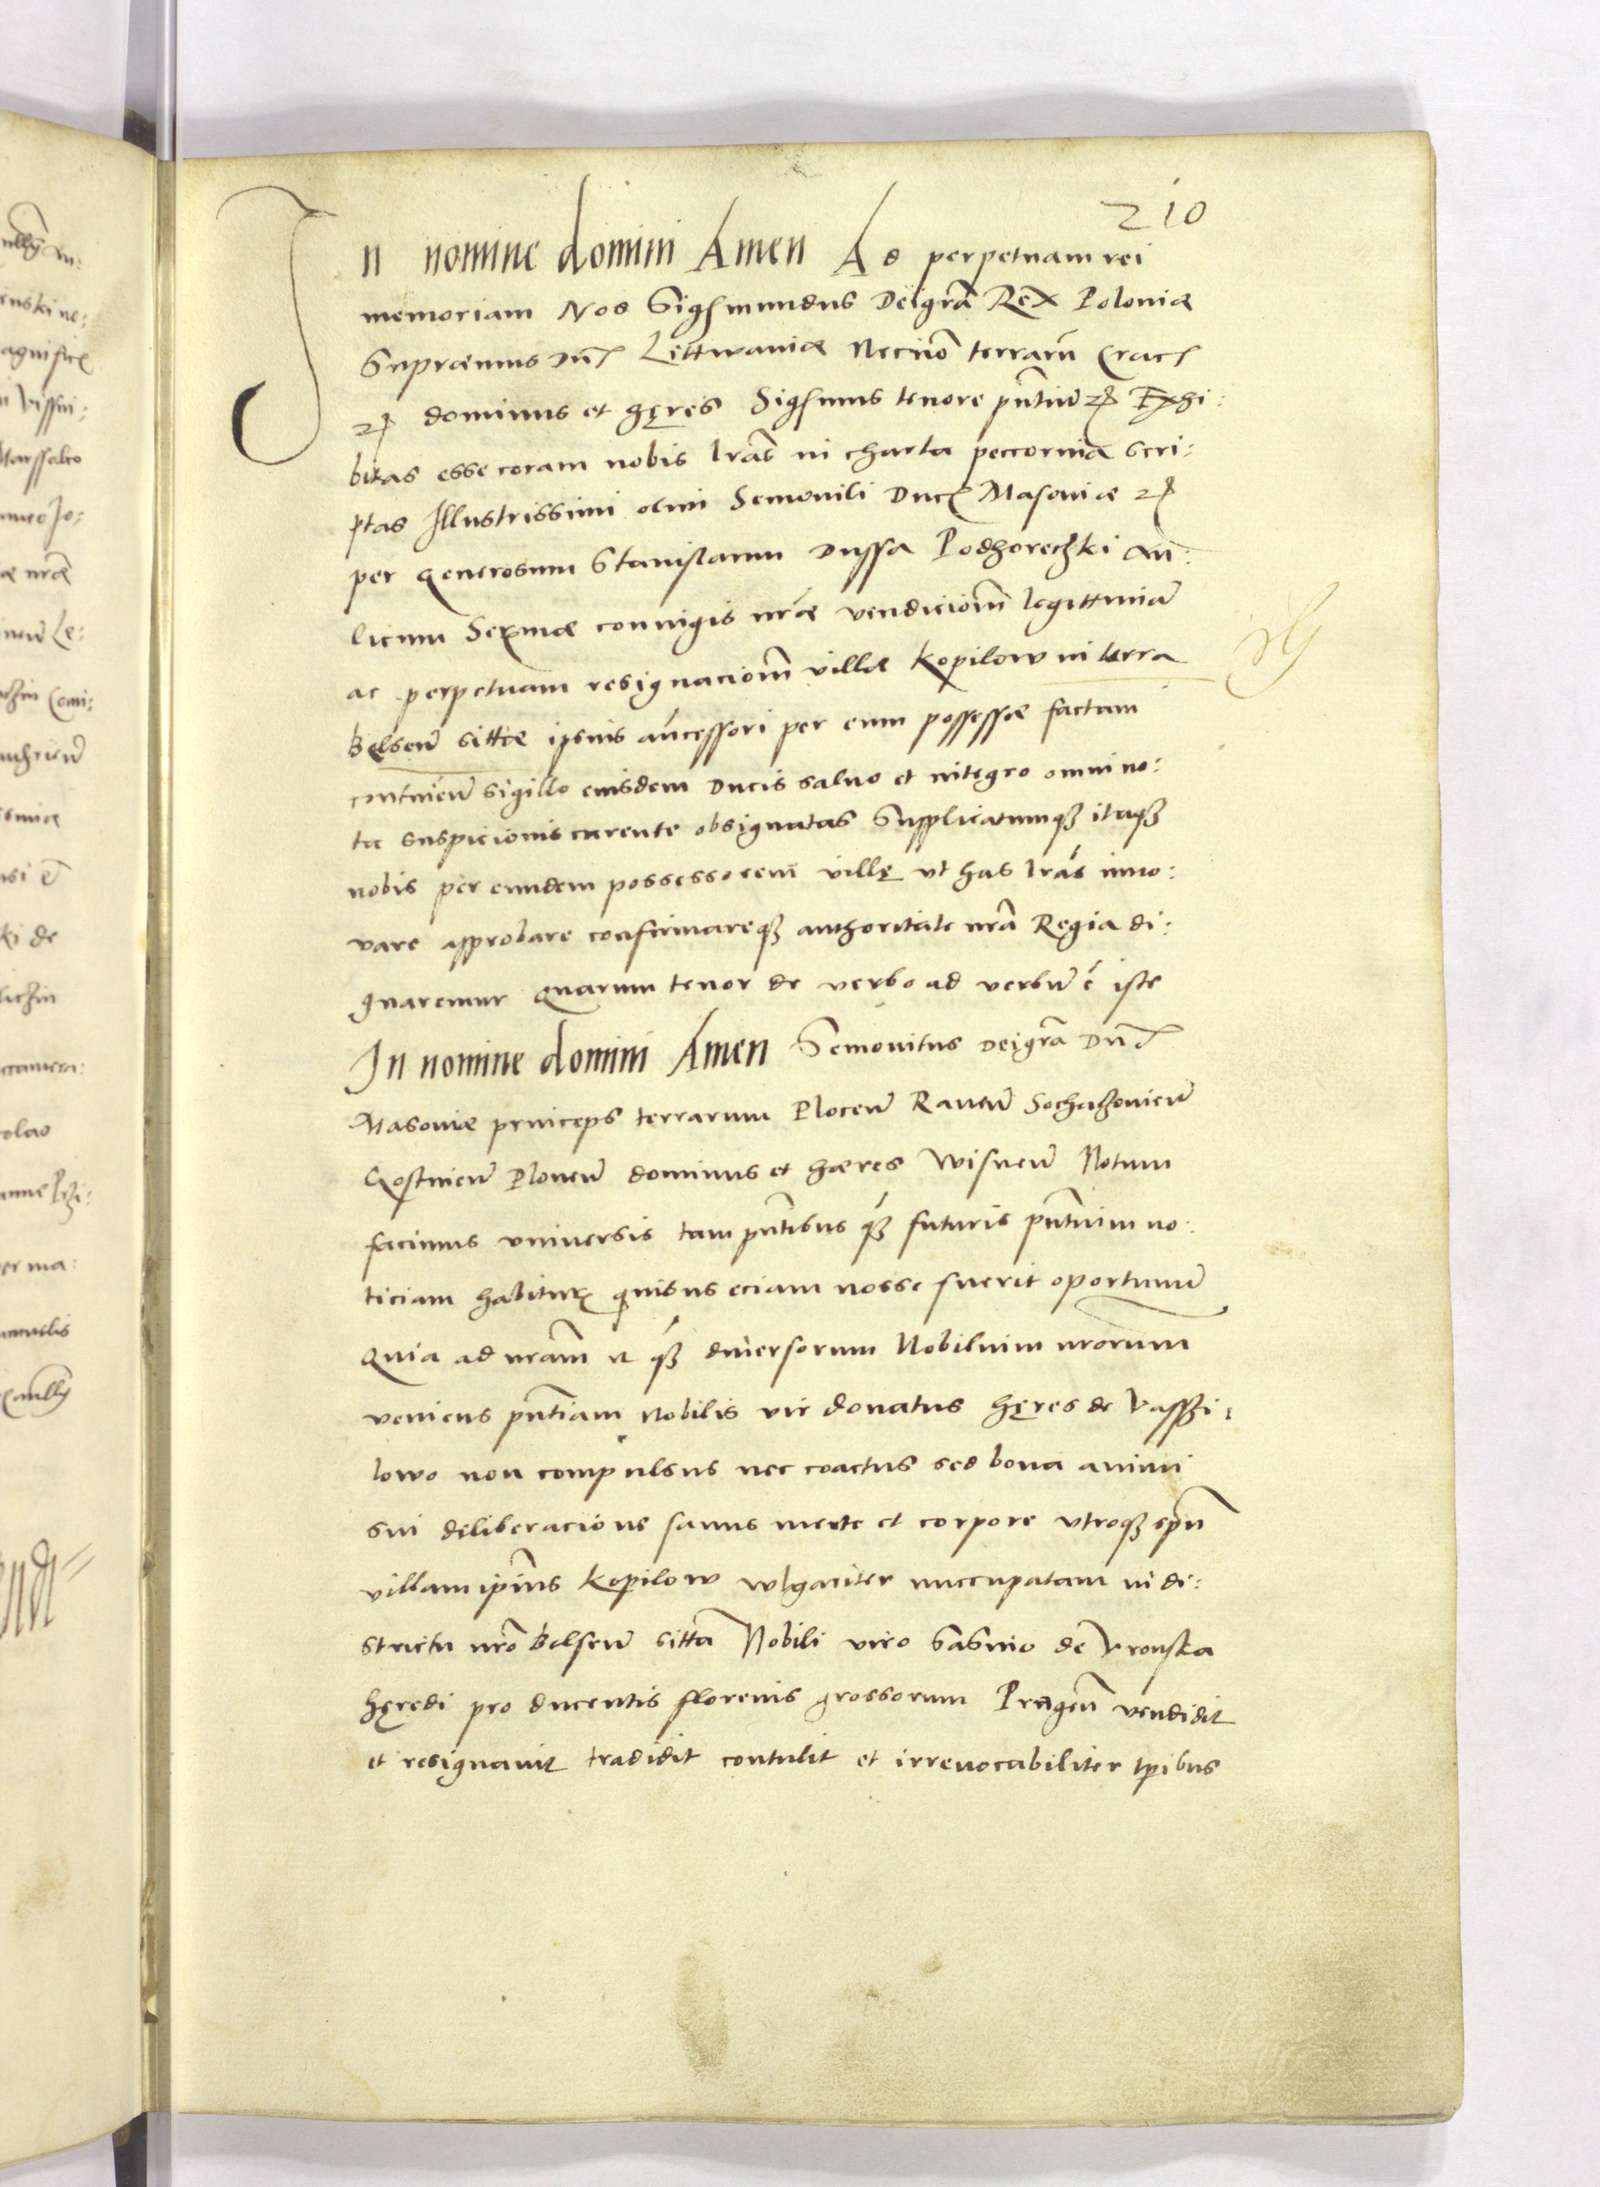 210
In nomine domini Amen Ad perpetuam rei
memoriam Nos Sigismundus Dei grã Rex Poloniæ
Supræmus Dux Littwaniæ Necnõ terrarũ Crac
dominus et hęres Sig̃mus tenore pñtiũ Exhi:
bitas esse coram nobis lrãs in charta peccorina scri:
ptas Illustrissimi olim Semoviti Ducis Masoviæ
per generosum Stanislaum Dussa Podhoreczki au:
licum Sermæ coniugis nr̃æ vendicionẽ legittimã
ac perpetuam resignacionẽ villæ Kopilow in terra
Belsen̄ sittæ ipsius añcessori per eum possessæ factam
continen̄ sigillo eiusdem Ducis saluo et integro omni no:
ta suspicionis carente obsignatas Supplicatumqȝ itaqȝ
nobis per eundem possessorem villę vt has lrãs inno:
vare approbare confirmareqȝ authoritate nrã Regia di:
gnaremur Quarum tenor de verbo ad verbũ ẽ iste
In nomine domini Amen Semovitus Dei grã Dux
Masoviæ princeps terrarum Plocen̄ Raven̄ Sochaczovien̄
Gostinien̄ Plonen̄ dominus et hæres Wisnen̄ Notum
facimus vniversis tam pñtibus qȝ futuris pñtium no:
ticiam habituris quibus eciam nosse fuerit oportunũ
Quia ad nrãm et qȝ diuersorum Nobilium nrorum
veniens pñtiam Nobilis vir donatus hęres de Vasszi:
lowo non compulsus nec coactus sed bona animi
sui deliberacione sanus mente et corpore vtroqȝ
villam ipsius Kopilow wlgariter nuccupatam in di:
strictu nrõ Belsen̄ sittã Nobili viro Sasino de Vronska
hęredi pro ducentis florenis grossorum Pragen̄ vendidit
et resignauit tradidit contulit et irreuocabiliter tpibus